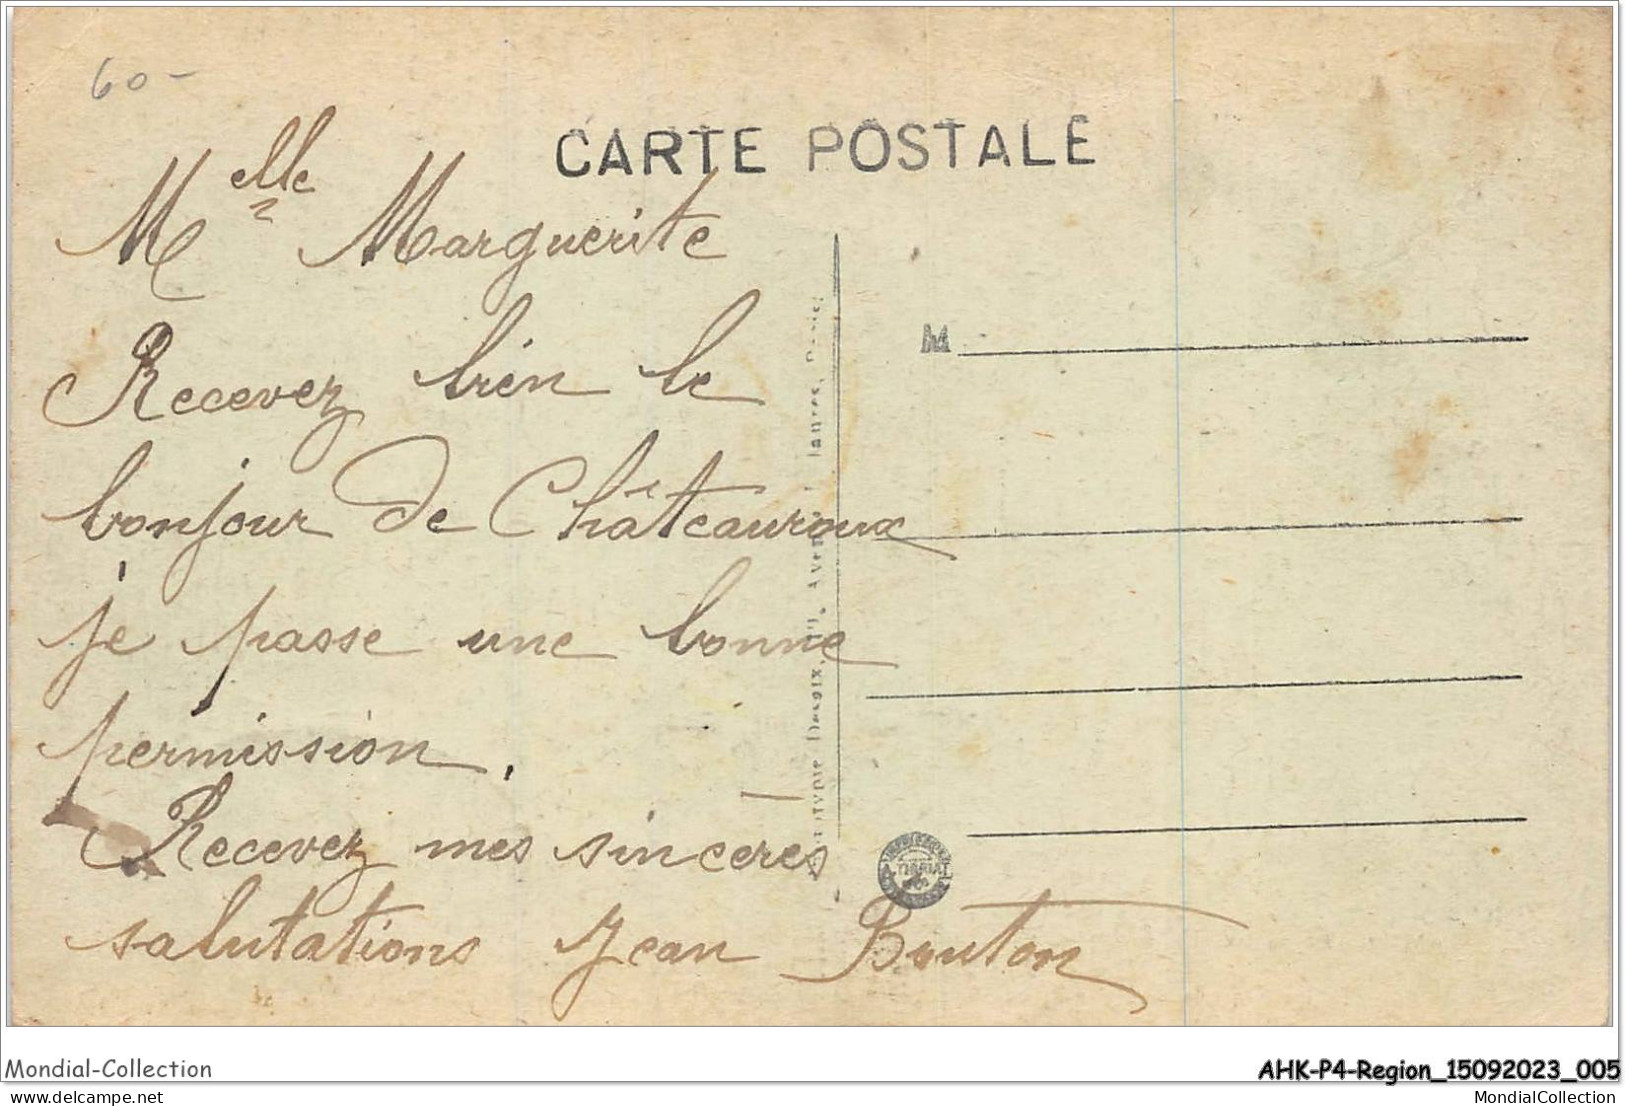 60-
CARTE POSTALE
Melle Marguerite
Recevez bien le
bonjour de Châteauroux
je passe une bonne
permission.
Recevez mes sincères
salutations Jean Bouton
M
Mondial-Collection
AHK-P4-Region_15092023_005
www.delcampe.net
MondialCollection